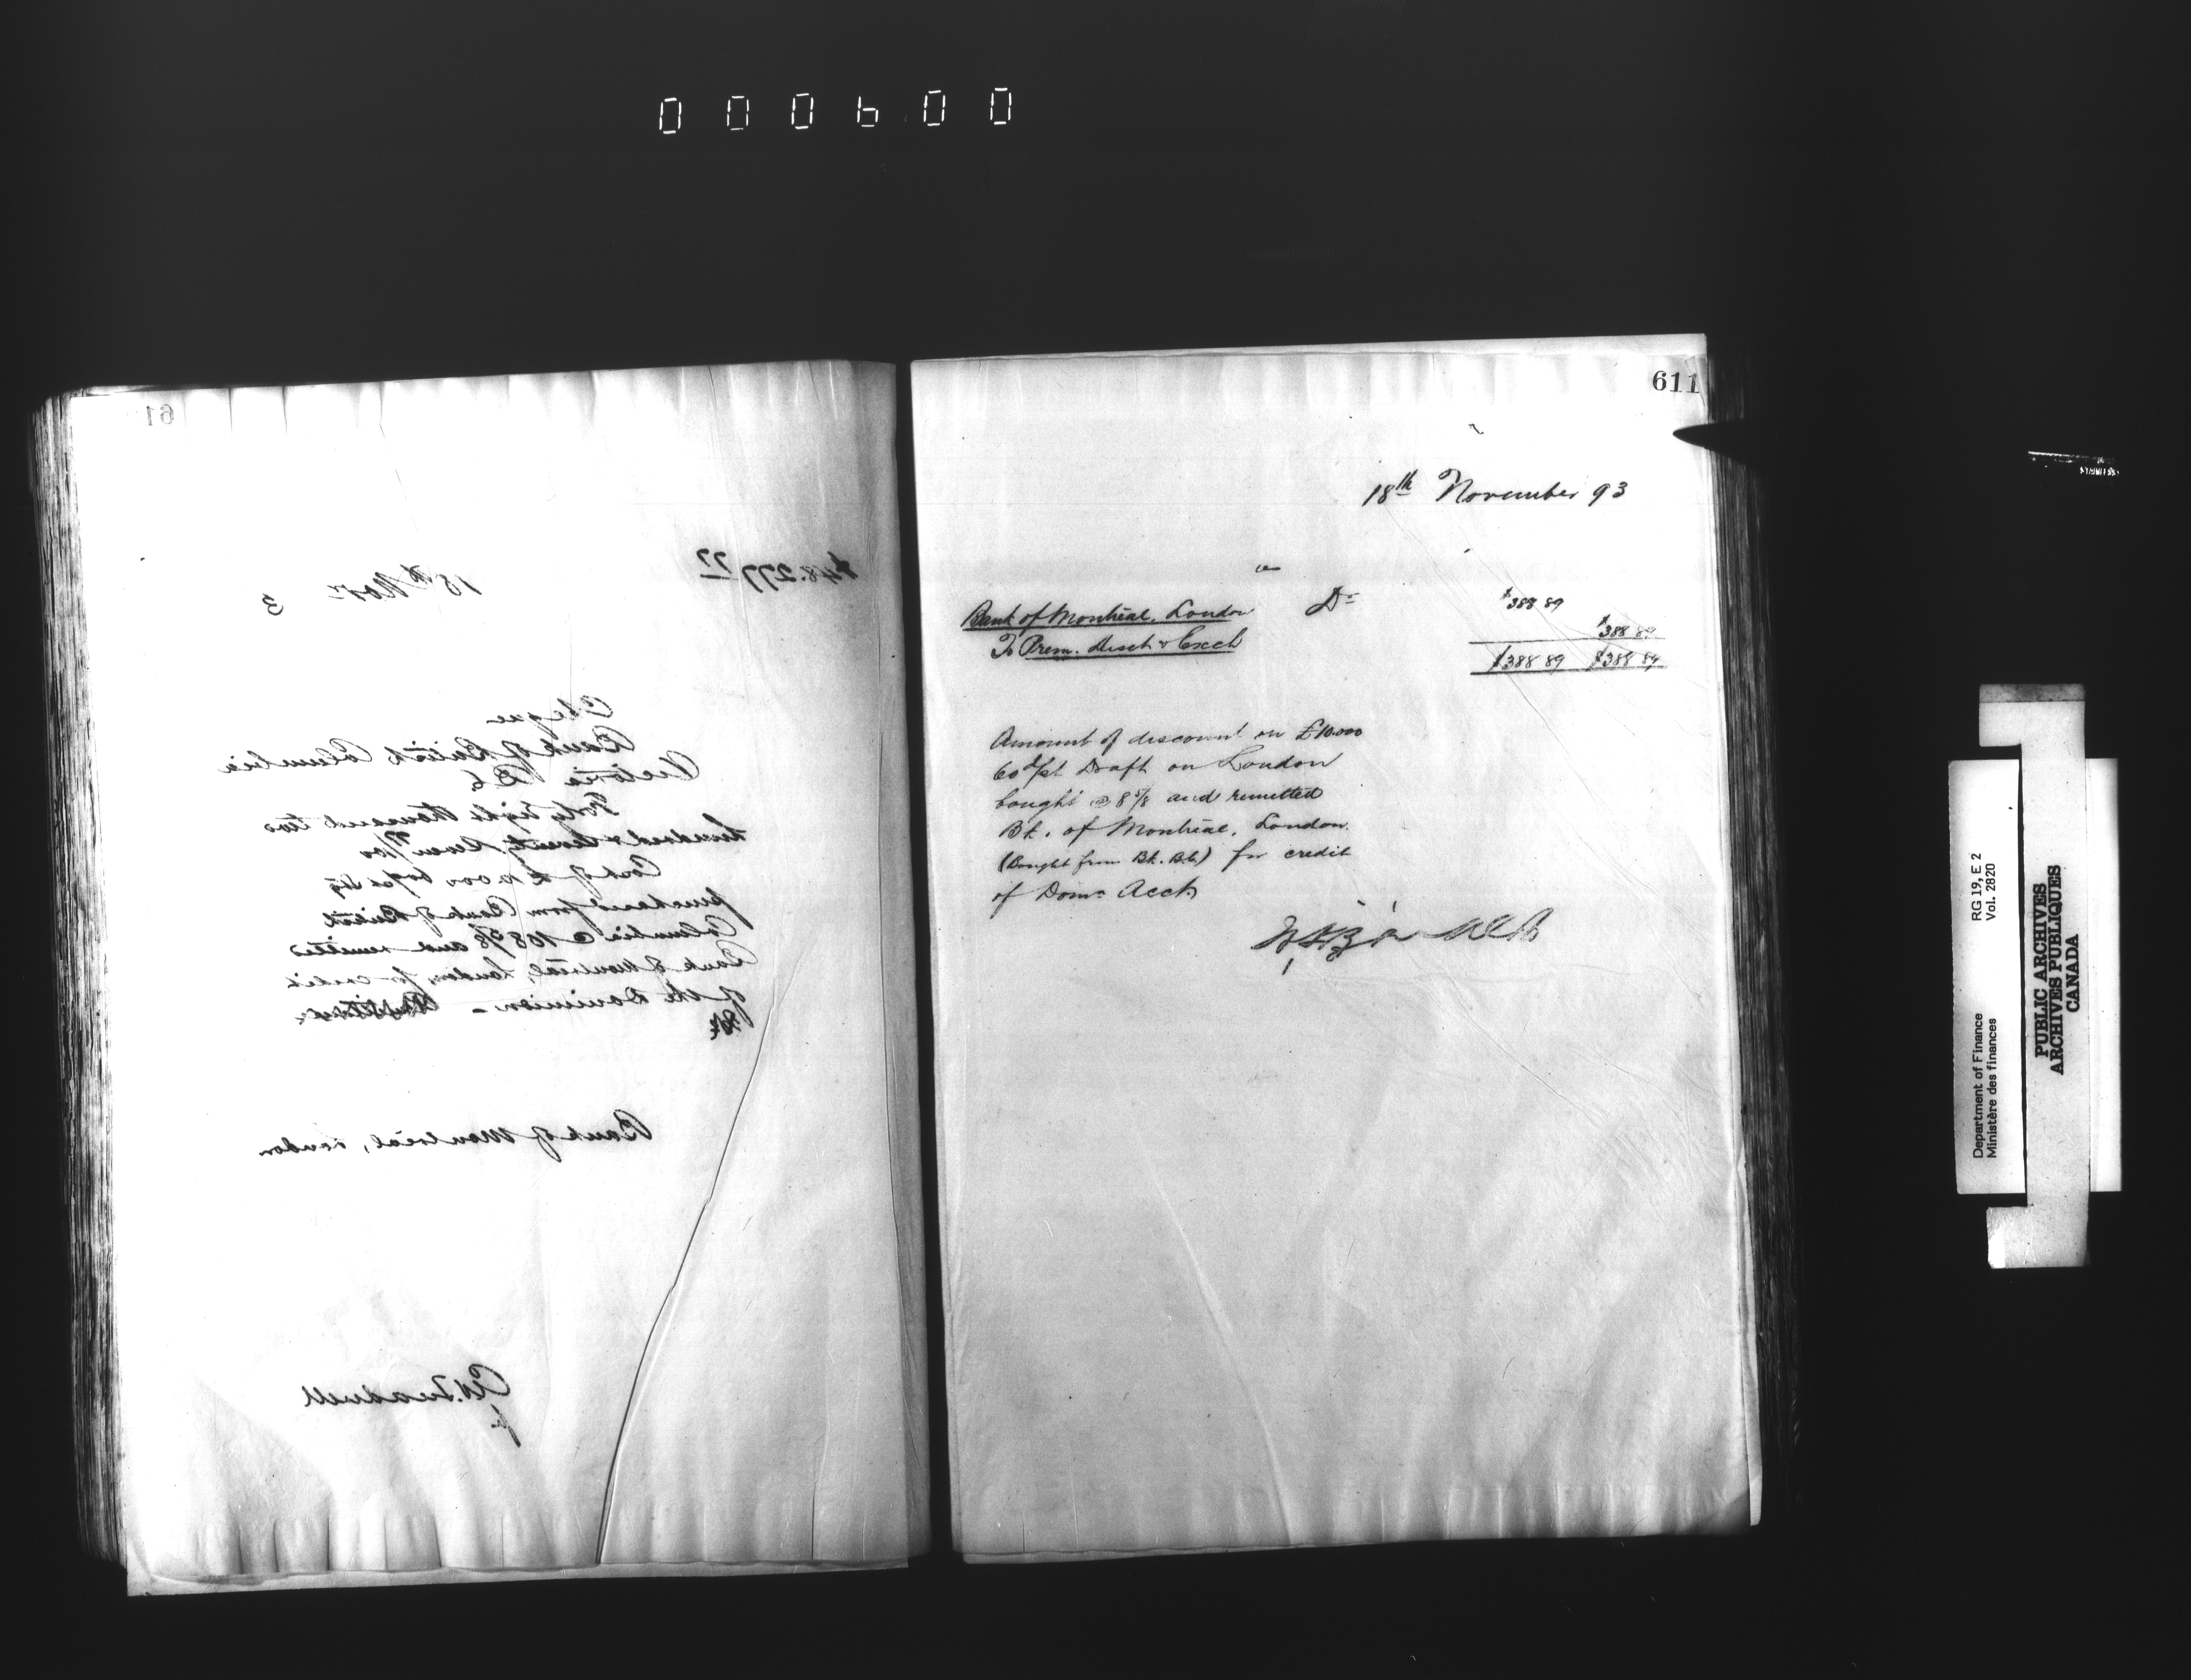 000600
61
$48.277 77
18th Novr 3
Cheque
Bank of British Columbia
Victoria B C
Forty eight thousand two
hundred & seventy seven 77/100
Cost of £10.000 60/ds Stg
purchased from Bank of British
Columbia @ 108 5/8 and remitted
Bank of Montreal, London, for credit
of the Dominion -
Bank of Montreal, London
611
18th November 93
Bank of Montreal, London Dr $388 89
To Prem. Disct & Exch $388 89
$388 89 $388 89
Amount of discount on £10.000
60 d/st Draft on London
bought @ 8 5/8 and remitted
Bk. of Montreal, London.
(Bought from Bk. B.C.) for credit
of Domn Acct
Department of Finance RG 19, E 2
Ministère des finances Vol. 2820
PUBLIC ARCHIVES
ARCHIVES PUBLIQUES
CANADA